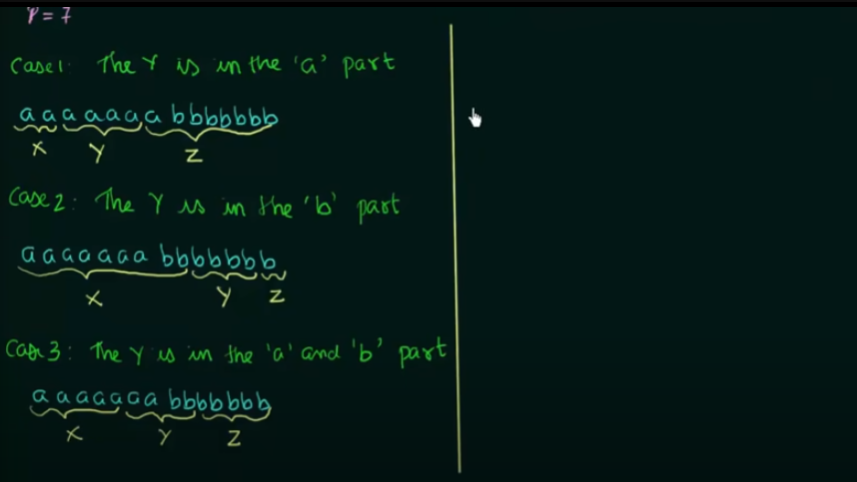 P = 7
Case 1: The Y is in the 'a' part
aaaaaaabbbbbbb
X Y Z
Case 2: The Y is in the 'b' part
aaaaaaabbbbbbb
X Y Z
Case 3: The Y is in the 'a' and 'b' part
aaaaaaabbbbbbb
X Y Z